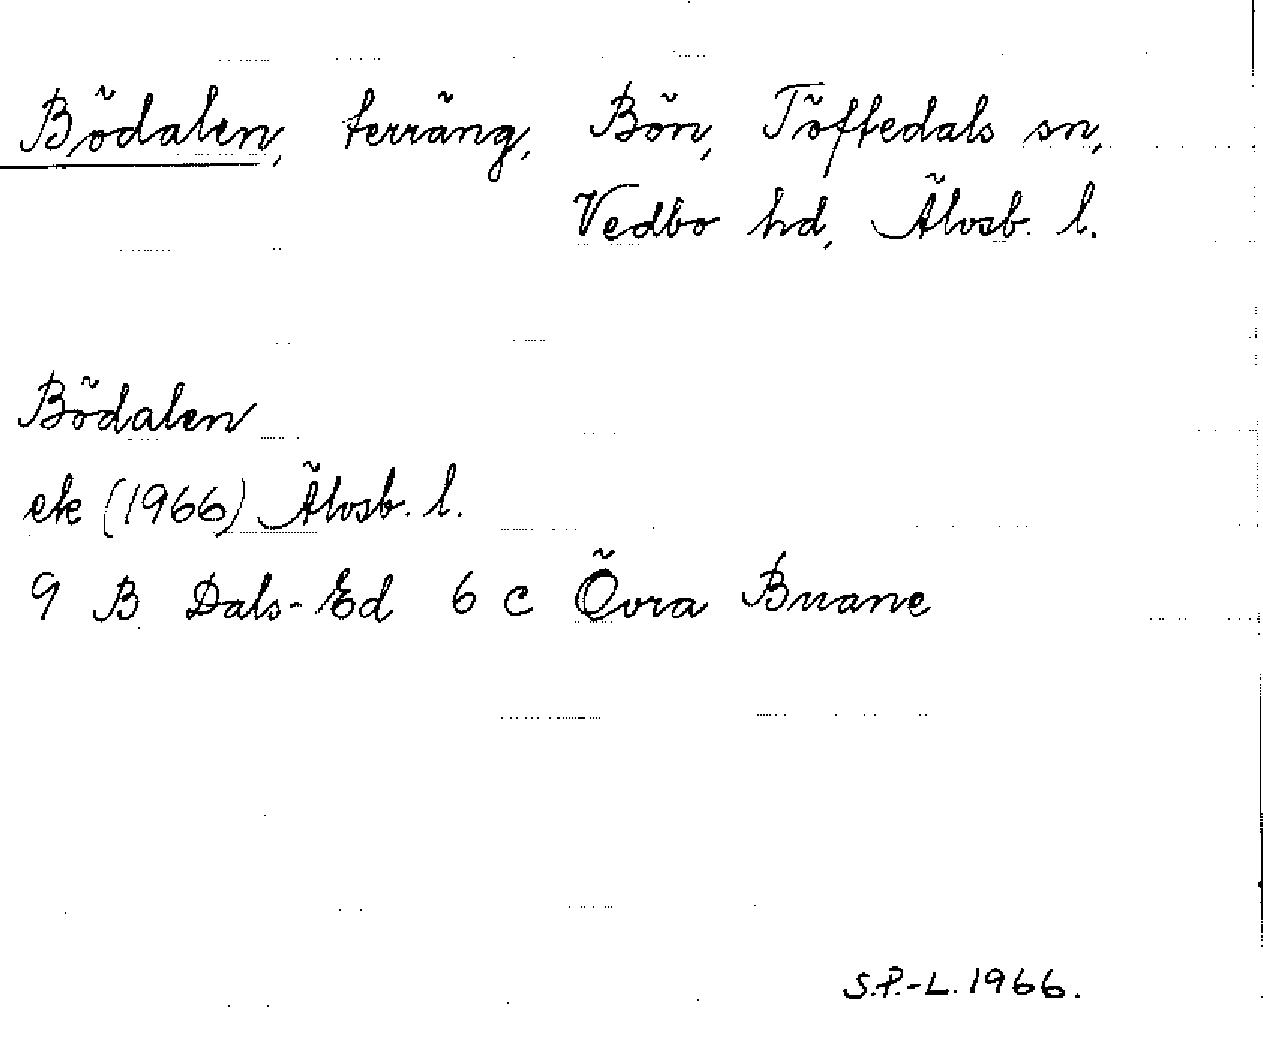 Bödalen, terräng, Bön, Töftedals sn,
Vedbo hd, Älvsb. l.
Bödalen
ek (1966) Älvsb. l.
9 B Dals-Ed 6 c Övra Buane
S.P.-L. 1966.